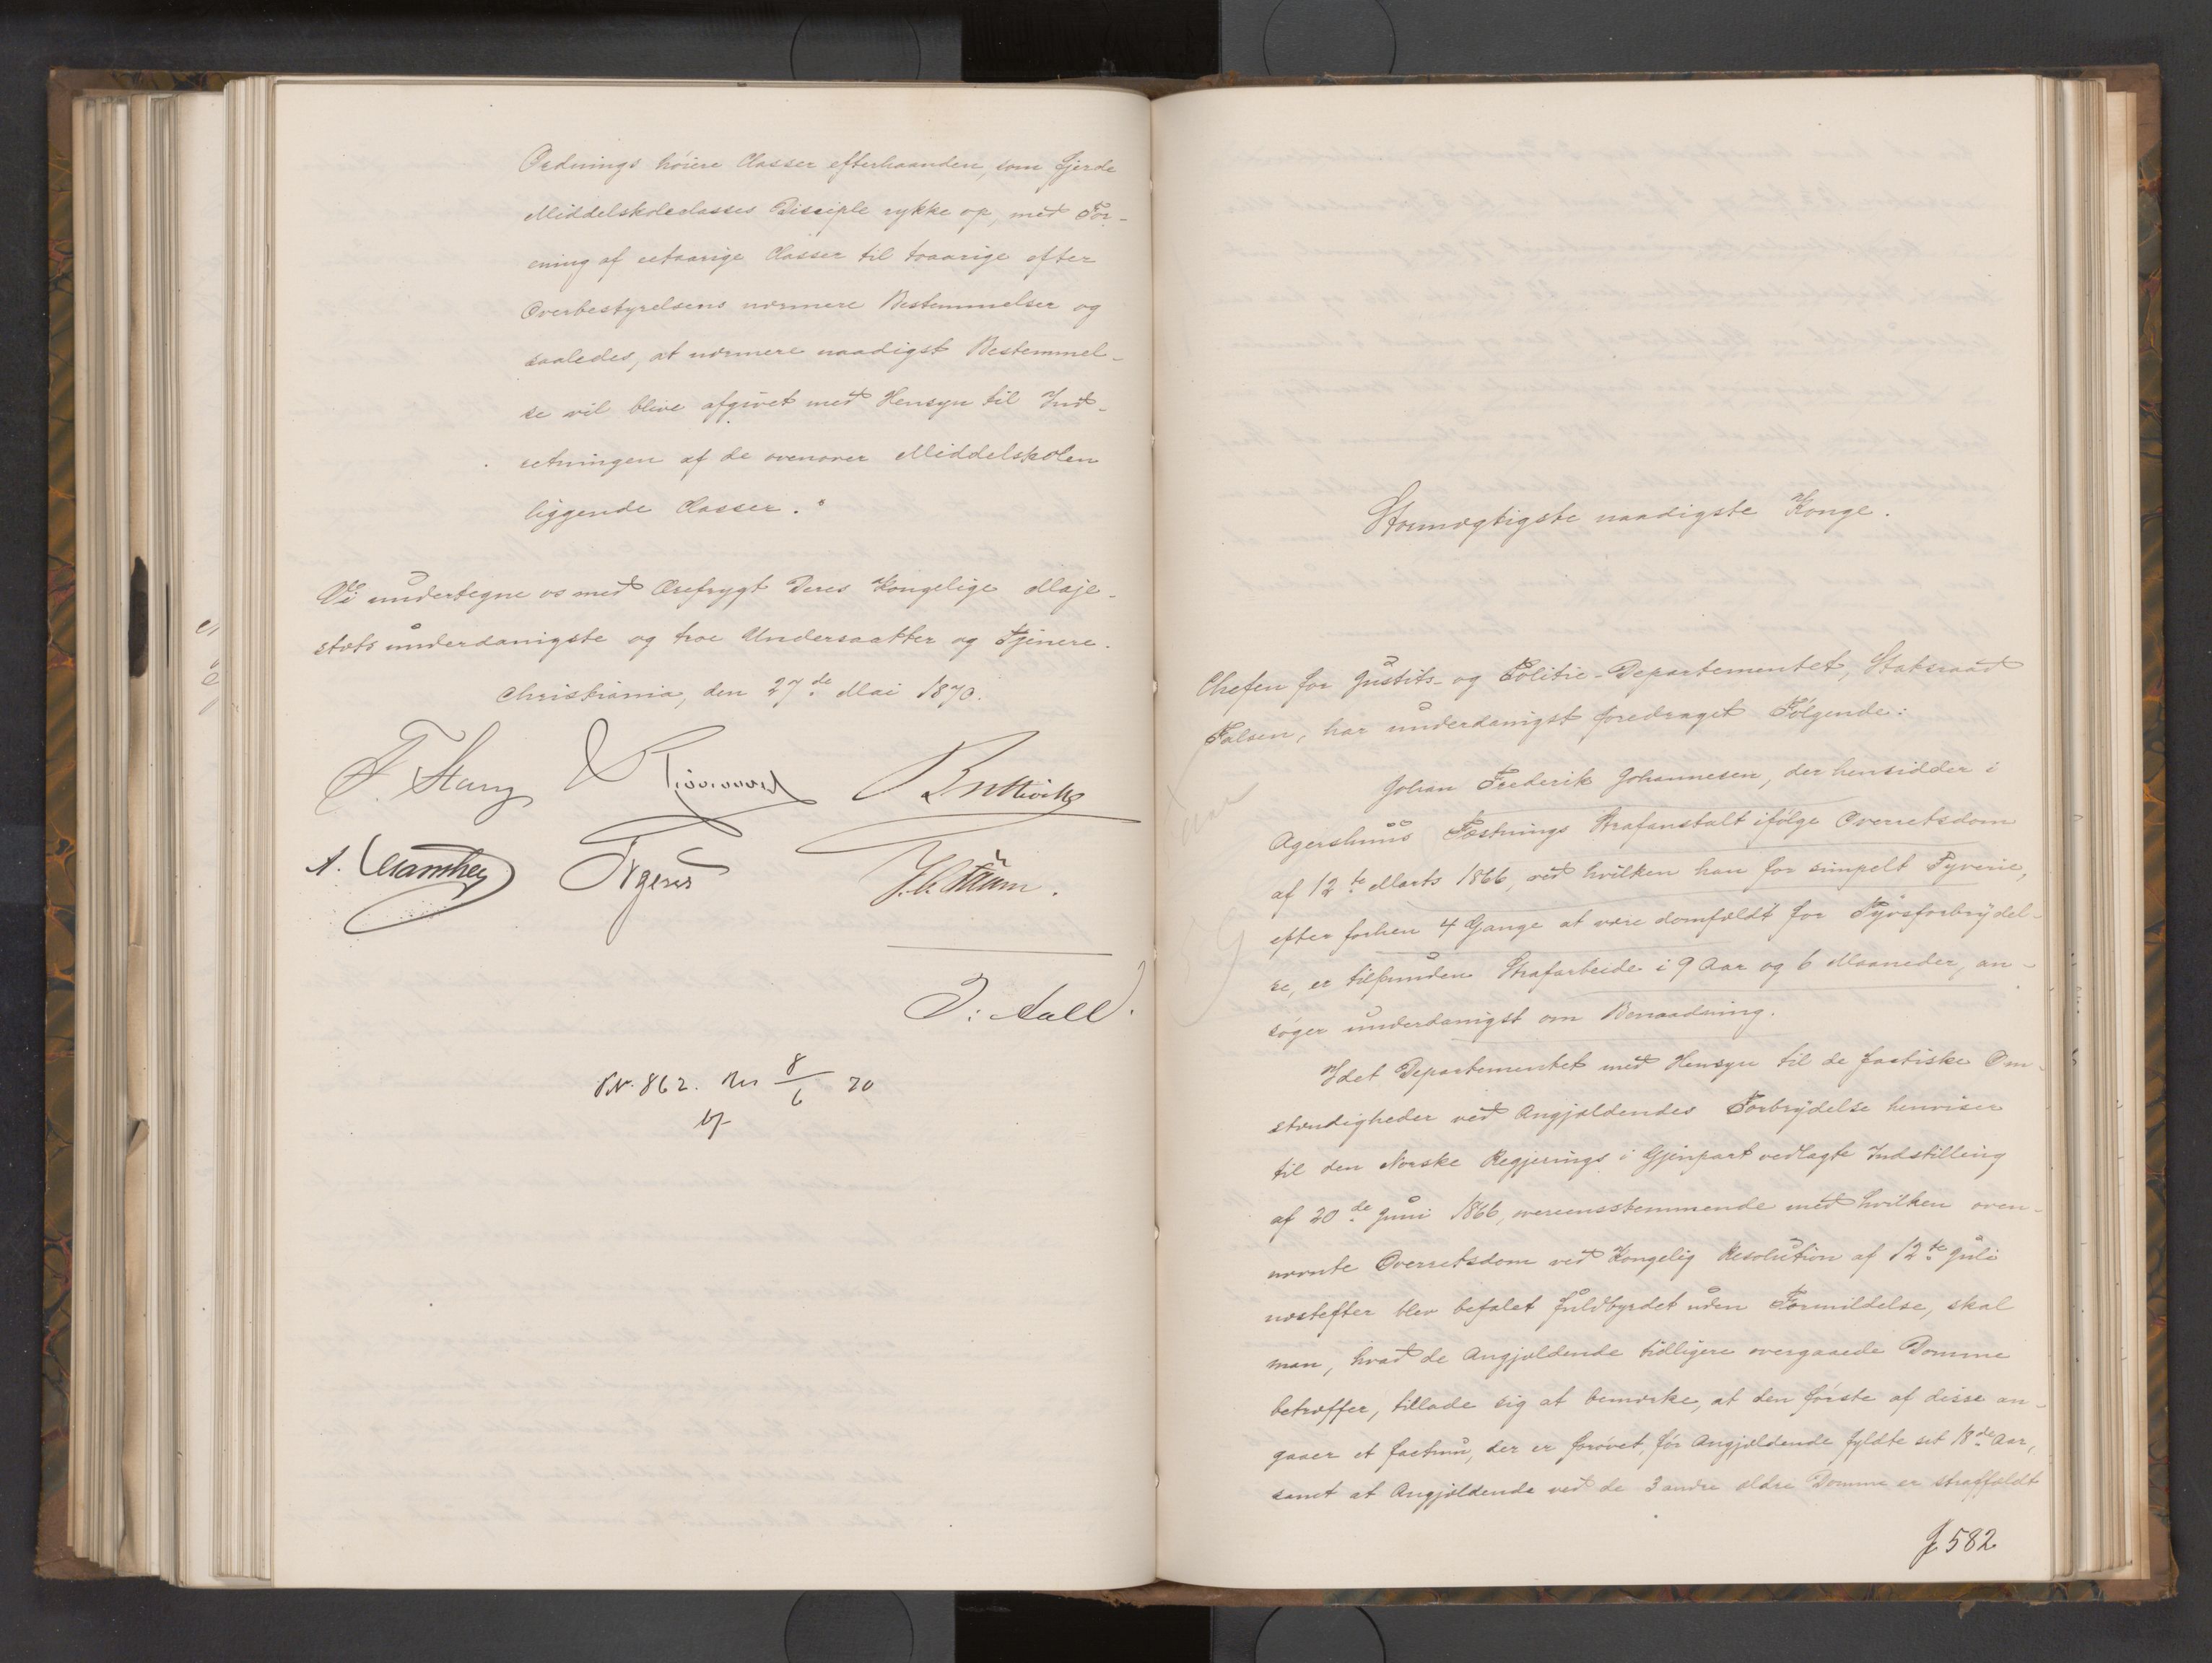 Ordnings høiere Classer efterhaanden, som fjerde
Middelskoleclasses Disciple rykke op, med For-
ening af eetaarige Classer til toaarige efter
Overbestyrelsens nærmere Bestemmelser og
saaledes, at nærmere naadigst Bestemmel-
se vil blive afgivet med Hensyn til Ind-
retningen af de ovenover Middelskolen
liggende Classer."
Vi undertegne os med Ærefrygt Deres Kongelige Maje-
stæts underdanigste og troe Undersaatter og Tjenere.
Christiania, den 27de Mai 1870.
F. Stang
A. Manthey
J. Aall.
PN. 862. 8/6 70
Stormægtigste naadigste Konge.
Chefen for Justits- og Politie-Departementet, Statsraad
Falsen, har underdanigst foredraget Følgende:
Johan Frederik Johannesen, der hensidder i
Agershuus Fæstnings Strafanstalt ifølge Overretsdom
af 12te Marts 1866, ved hvilken han for simpelt Tyverie,
efter forhen 4 Gange at være domfældt for Tyvsforbrydel-
se, er tilfunden Strafarbeide i 9 Aar og 6 Maaneder, an-
søger underdanigst om Benaadning.
Idet Departementet med Hensyn til de factiske Om-
stændigheder ved Angjældendes Forbrydelse henviser
til den Norske Regjerings i Gjenpart vedlagte Indstilling
af 20de Juni 1866, overeensstemmende med hvilken oven-
nævnte Overretsdom ved Kongelig Resolution af 12te Juli
næstefter blev befalet fuldbyrdet uden Formildelse, skal
man, hvad de Angjældende tidligere overgaaede Domme
betræffer, tillade sig at bemærke, at den første af disse an-
gaaer et factum, der er forøvet, før Angjældende fyldte sit 18de Aar,
samt at Angjældende ved de 3 andre ældre Domme er straffældt
J 582